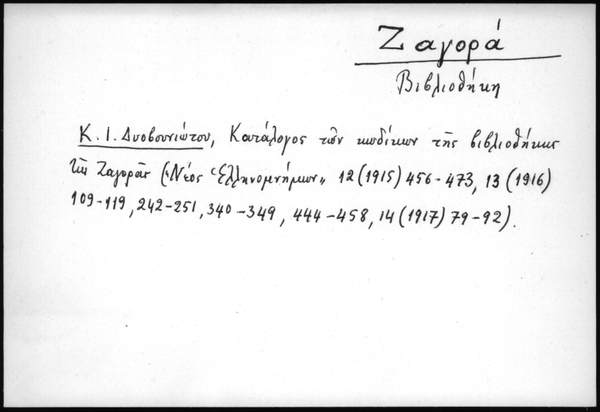 Ζαγορά
Βιβλιοθήκη
Κ. Ι. Δυοβουνιώτου, Κατάλογος τῶν κωδίκων τῆς βιβλιοθήκης
τῆς Ζαγορᾶς («Νέος Ἑλληνομνήμων» 12 (1915) 456-473, 13 (1916)
109-119, 242-251, 340-349, 444-458, 14 (1917) 79-92).